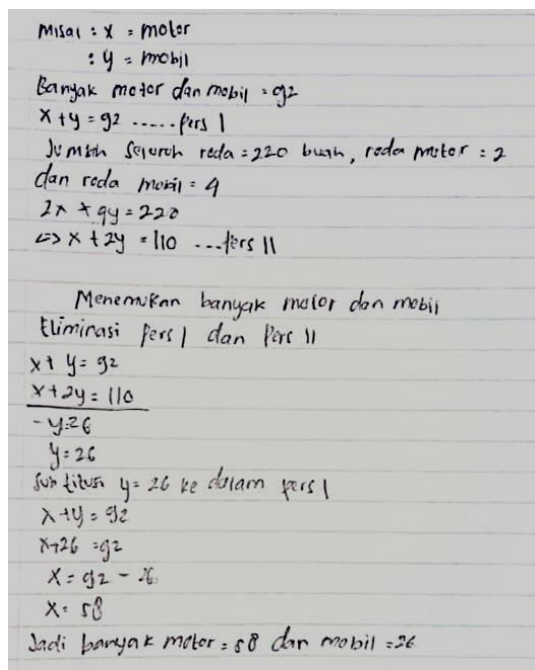 Misal : x = motor
: y = mobil
Banyak motor dan mobil = 92
x + y = 92 ...... Pers I
Jumlah seluruh roda = 220 buah, roda motor = 2
dan roda mobil = 4
2x + 4y = 220
<=> x + 2y = 110 ... Pers II
Menemukan banyak motor dan mobil
Eliminasi Pers I dan Pers II
x + y = 92
x + 2y = 110
- y = 26
y = 26
Subtitusi y = 26 ke dalam pers I
x + y = 92
x + 26 = 92
x = 92 - 26
x = 58
Jadi banyak motor = 58 dan mobil = 26